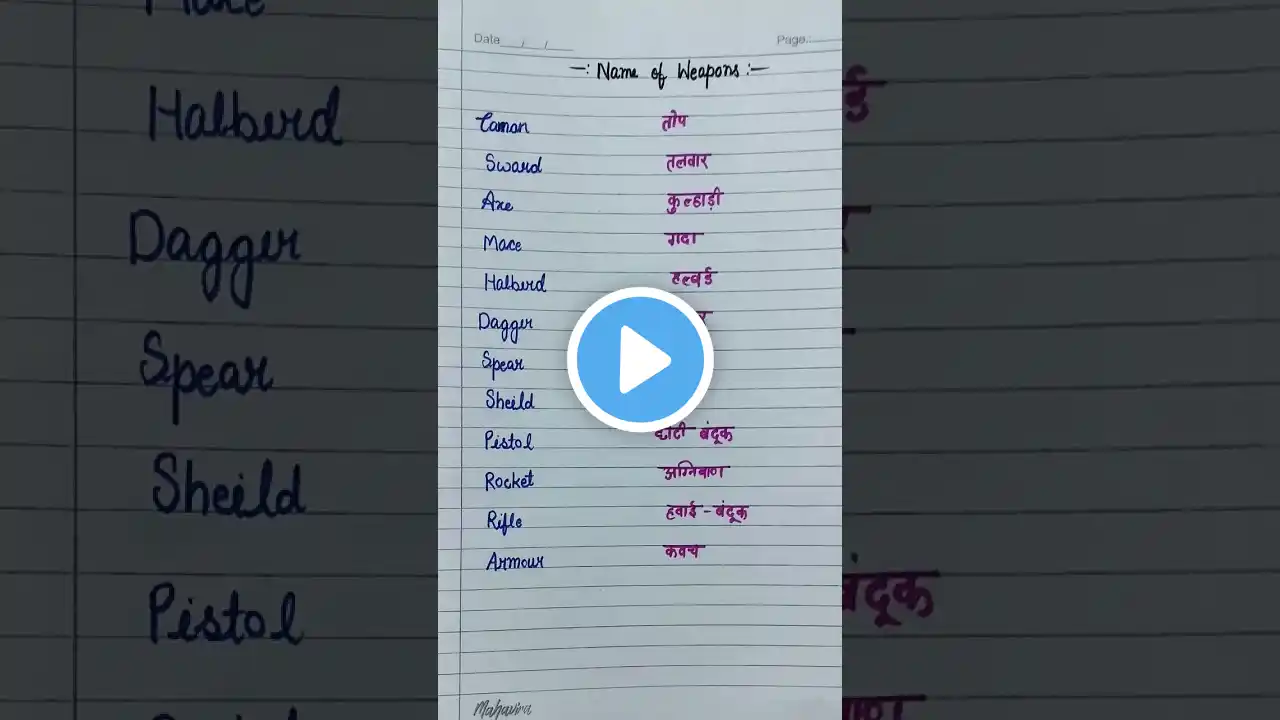 Date / /
Page
—: Name of Weapons :—
Canon तोप
Sword तलवार
Axe कुल्हाड़ी
Mace गदा
Halberd हल्बर्ड
Dagger
Spear
Sheild
Pistol छोटी बंदूक
Rocket अग्निबाण
Rifle हवाई-बंदूक
Armour कवच
Mahavira
Halberd
Dagger
Spear
Sheild
Pistol